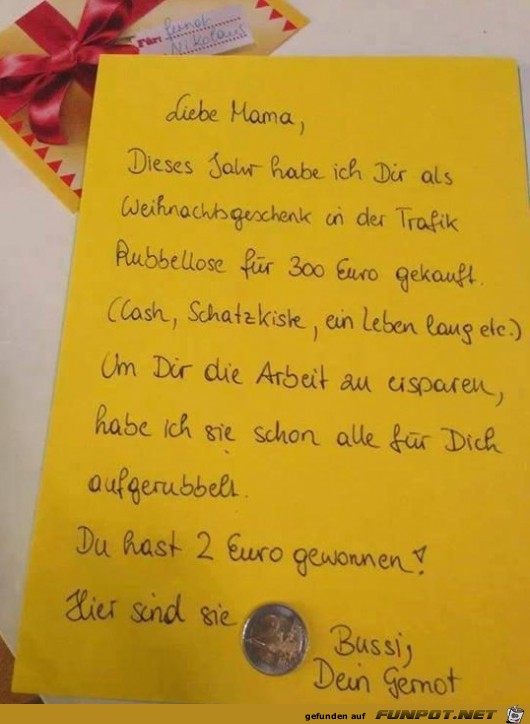 Für: Gernot
Nikolaus
Liebe Mama,
Dieses Jahr habe ich Dir als
Weihnachtsgeschenk in der Trafik
Rubbellose für 300 Euro gekauft.
(Cash, Schatzkiste, ein Leben lang etc.)
Um Dir die Arbeit zu ersparen,
habe ich sie schon alle für Dich
aufgerubbelt.
Du hast 2 Euro gewonnen!
Hier sind sie
Bussi,
Dein Gernot
gefunden auf FUNPOT.NET